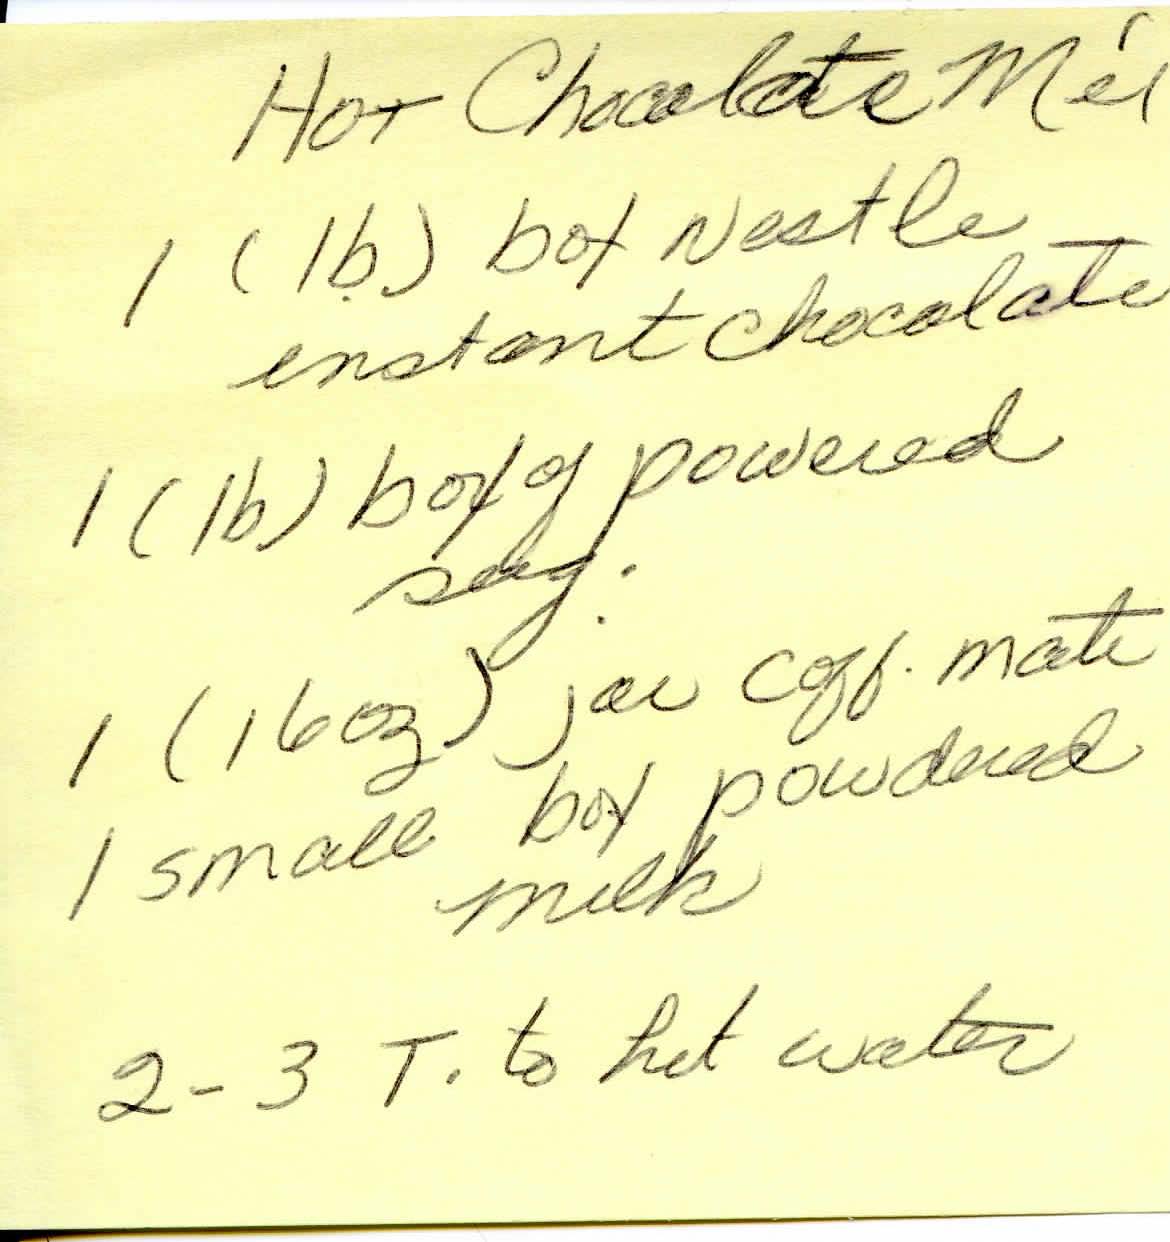 Hot Chocolate Mix
1 (1b.) box Nestle
instant chocolate
1 (1b) box of powered
sug.
1 (16oz) jar coff. mate
1 small box powdered
milk
2-3 T. to hot water